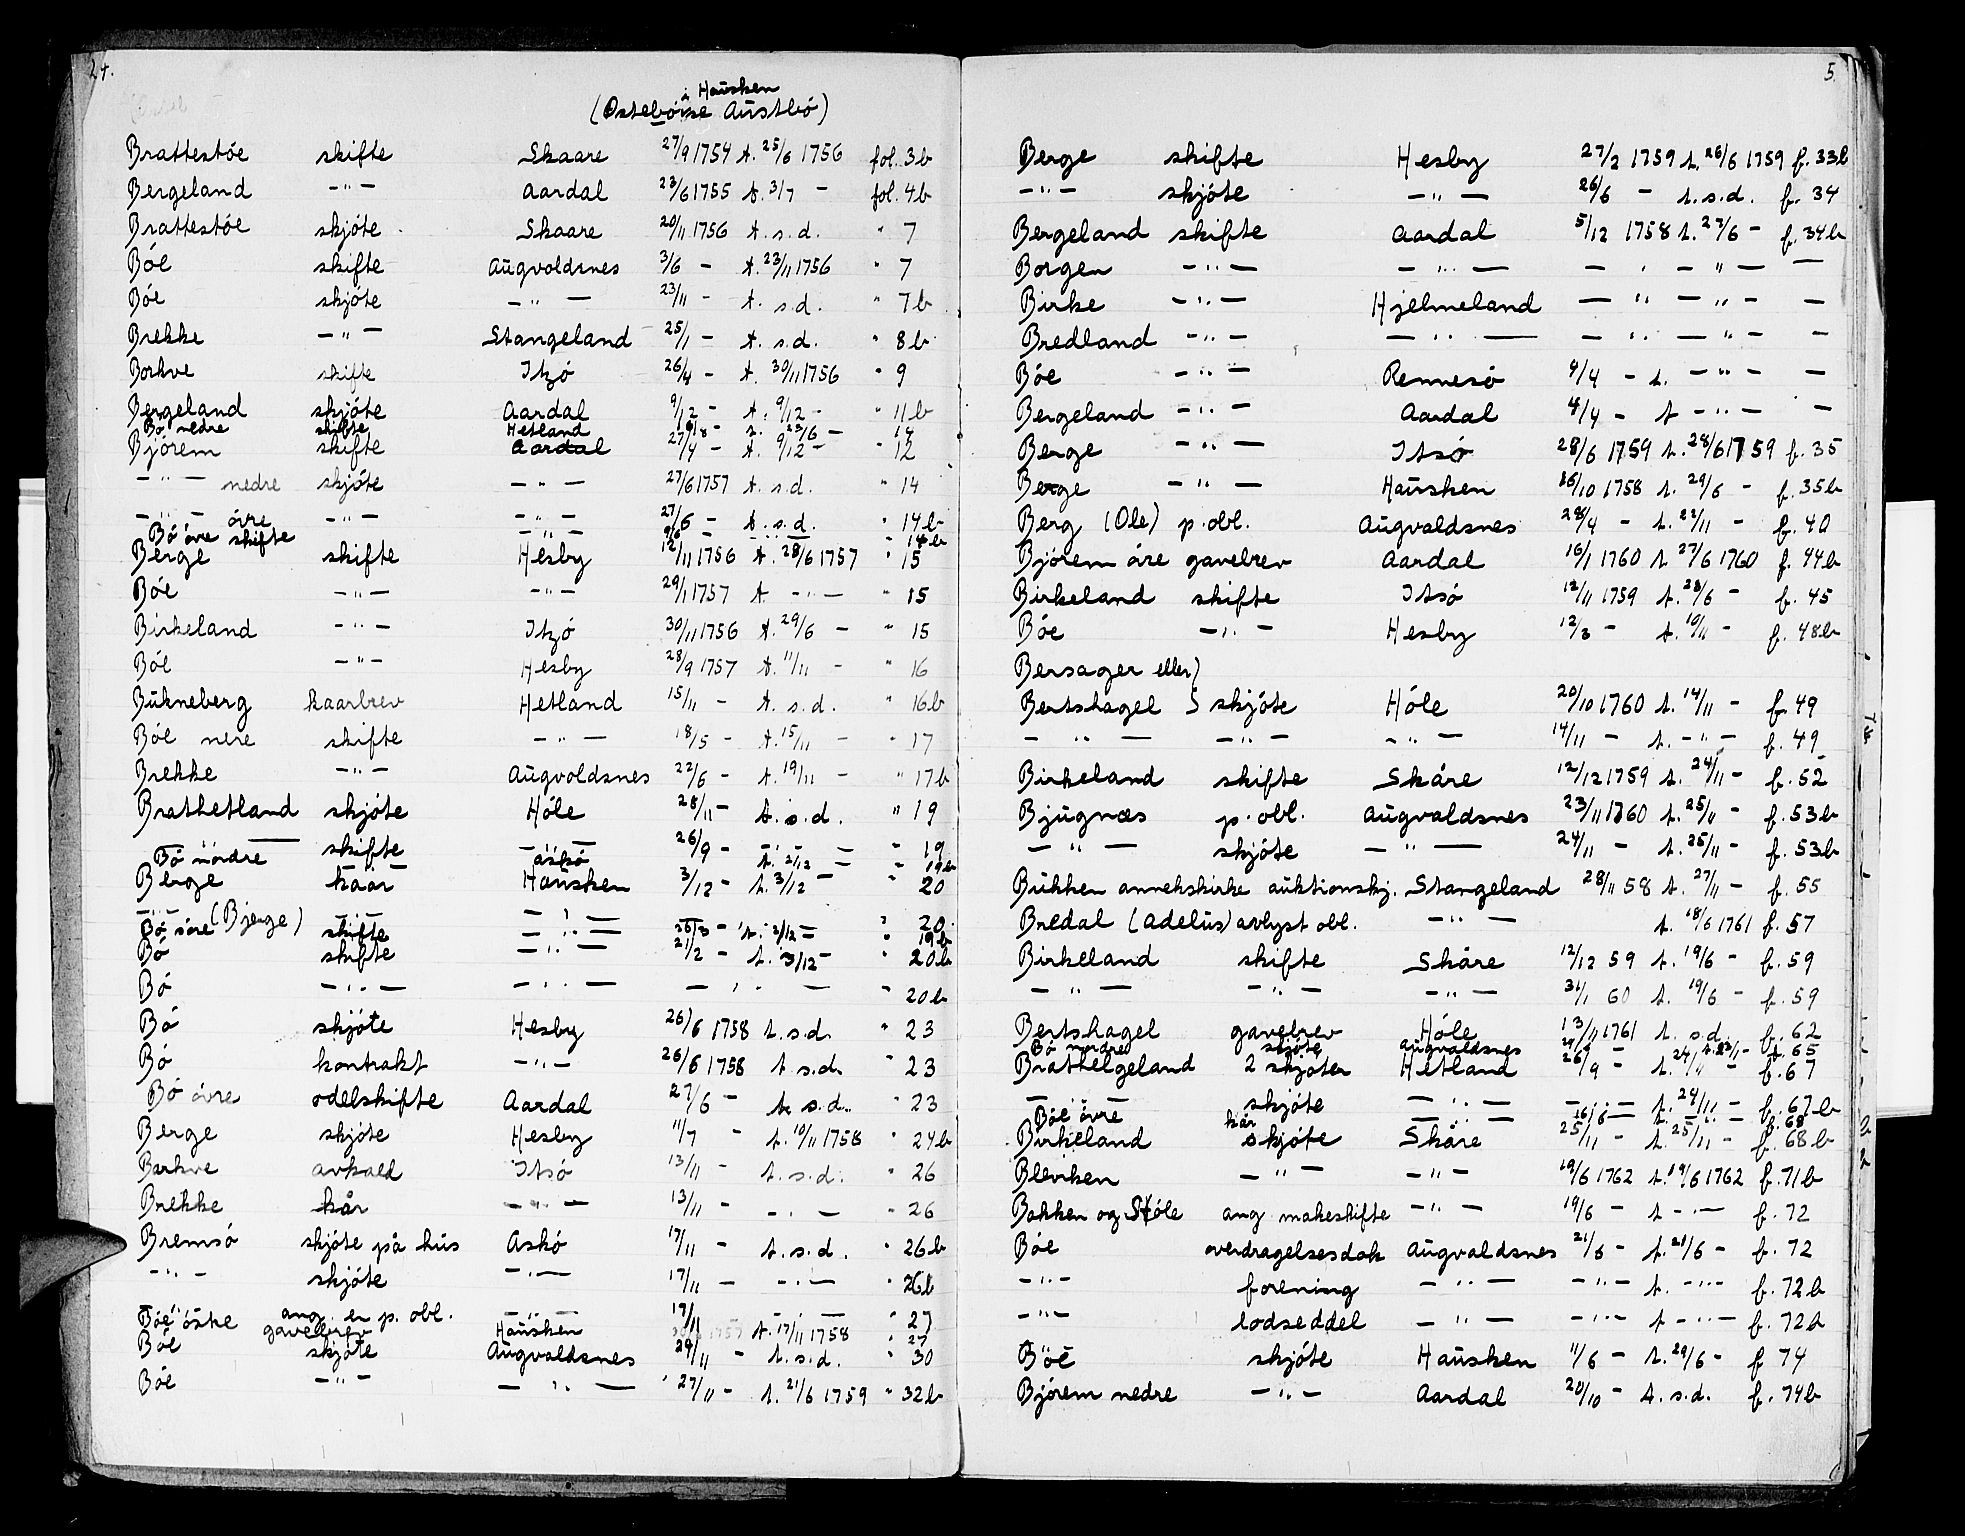 24.
i Hausken
(Østebøiske Austbø)
Brattestøe skifte Skaare 27/9 1754 t. 25/6 1756 fol. 3b
Bergeland -"- Aardal 23/6 1755 t. 3/7 - fol. 4b
Brattestøe skjøte Skaare 20/11 1756 t. s. d. " 7
Bøe skifte Augvoldsnes 3/6 - t. 23/11 1756 " 7
Bøe skjøte -"- 23/11 - t. s. d. " 7b
Brekke -"- Stangeland 25/1 - t. s. d. " 8b
Borkve skifte Itzø 26/4 - t. 30/11 1756 " 9
Bergeland skjøte Aardal 9/12 - t. 9/12 - " 11b
Bø nedre skifte Hetland 9/8 - t. 23/6 - 14
Bjørem skifte Aardal 27/4 - t. 9/12 - " 12
-"- nedre skjøte -"- 27/6 1757 t. s. d. " 14
-"- øvre -"- -"- 27/6 - t. s. d. " 14b
Bø øvre skifte -"- 9/6 - -"- " 14b
Berge skifte Hesby 12/11 1756 t. 28/6 1757 " 15
Bøe -"- -"- 29/1 1757 t. -"- " 15
Birkeland -"- Itzø 30/11 1756 t. 29/6 - " 15
Bøe -"- Hesby 28/9 1757 t. 11/11 - " 16
Bukneberg kaarbrev Hetland 15/11 - t. s. d. " 16b
Bøe nere skifte -"- 18/5 - t. 15/11 - " 17
Brekke -"- Augvoldsnes 22/6 - t. 19/11 - " 17b
Brathetland skjøte Høle 28/11 - t. s. d. " 19
- skifte -"- 26/9 - -"- " 19
Bø nordre Askø t. 2/12 = " 19b
Berge kaar Hausken 3/12 - t. 3/12 - " 20
-"- (Bjerge) -"- -"- -"- " 20
Bø søre skifte -"- 26/3 - t. 2/12 = " 19b
Bø skifte -"- 21/2 - t. 3/12 - " 20b
Bø -"- -"- -"- " 20b
Bø skjøte Hesby 26/6 1758 t. s. d. " 23
Bø kontrakt -"- 26/6 1758 t. s. d. " 23
Bø øvre odelskifte Aardal 27/6 - t. s. d. " 23
Berge skjøte Hesby 11/7 - t. 10/11 1758 " 24b
Barkve avkald Itsø 13/11 - t. s. d. " 26
Brekke kår -"- 13/11 - -"- " 26
Bremsø skjøte på hus Askø 17/11 - t. s. d. " 26b
-"- skjøte -"- 17/11 - -"- " 26b
-"- ang. en p. obl. -"- 17/11 -"- " 27
Bøe øske gavebrev Hausken t. 17/11 1758 " 27
Bøe skjøte Augvoldsnes 29/11 - t. s. d. " 30
Bøe -"- -"- 27/11 - t. 21/6 1759 " 32b
5.
Berge skifte Hesby 27/2 1759 t. 26/6 1759 f. 33b
-"- skjøte -"- 26/6 - t. s. d. f. 34
Bergeland skifte Aardal 5/12 1758 t. 27/6 - f. 34b
Borgen -"- -"- - " - " - -
Birke -"- Hjelmeland - " - " - -
Bredland -"- -"- - " - " - -
Bøe -"- Rennesø 4/4 - t. -"- -
Bergeland -"- Aardal 4/4 - t -"- -
Berge -"- Itsø 28/6 1759 t. 28/6 1759 f. 35
Berge -"- Hausken 16/10 1758 t. 29/6 - f. 35b
Berg (Ole) p. obl. Augvaldsnes 28/4 - t. 22/11 - f. 40
Bjørem øvre gavebrev Aardal 16/1 1760 t 27/6 1760 f. 44b
Birkeland skifte Itsø 12/11 1759 t. 28/6 - f. 45
Bøe -"- Hesby 12/3 - t. 10/11 - f. 48b
Bersager eller)
Bertshagel } skjøte Høle 20/10 1760 t. 14/11 - f. 49
-"- -"- -"- 14/11 - t. -"- - f. 49
Birkeland skifte Skåre 12/12 1759 t. 24/11 - f. 52
Bjugnæs p. obl. Augvaldsnes 23/11 1760 t. 25/11 - f. 53b
-"- skjøte -"- 24/11 - t. 25/11 - f. 53b
Bukken annekskirke auktionskj. Stangeland 28/11 58 t. 27/11 - f. 55
Bredal (Adelus) avlyst obl. -"- t. 18/6 1761 f. 57
Birkeland skifte Skåre 12/12 59 t. 19/6 - f. 59
-"- -"- -"- 31/1 60 t. 19/6 - f. 59
Bertshagel gavebrev Høle 13/11 1761 t. s. d. f. 62
Bø nordre skjøte Augvaldsnes - t. 23/11 - f. 65
Brathelgeland 2 skjøter Hetland 26/9 - t. 24/11 - f. 67
- skjøte -"- -"- t. 24/11 - f. 67b
Bøe øvre kår -"- 16/6 - f. 68
Birkeland skjøte Skåre 25/11 - t. 25/11 - f. 68b
Blenken -"- -"- 19/6 1762 t. 19/6 1762 f. 71b
Bakken og Støle ang makeskifte -"- 19/6 - t -"- f. 72
Bøe overdragelsesdok Augvaldsnes 21/6 - t. 21/6 - f. 72
-"- forening -"- -"- t. -"- f. 72b
-"- lodseddel -"- -"- t -"- f. 72b
Bøe skjøte Hausken 11/6 - t. 29/6 - f 74
Bjørem nedre -"- Aardal 20/10 - t. s. d. f. 74b